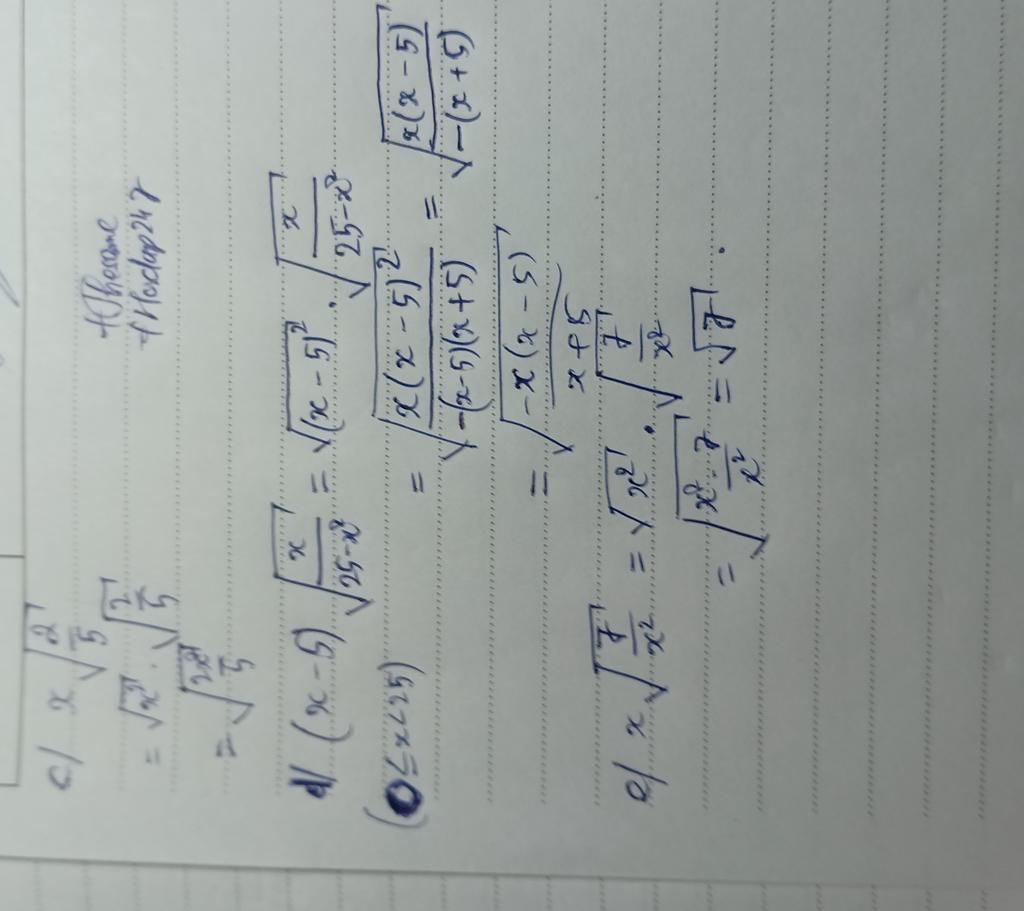 c/ x√(2/5)
= √x² . √(2/5)
= √(2x²/5)
+ Hoidap247
d/ (x-5) √(x/(25-x²)) = √(x-5)² . √(x/(25-x²))
(0≤x<25)
= √(x(x-5)²/(-(x-5)(x+5))) = √(x(x-5)/(-(x+5)))
= √(-x(x-5)/(x+5))
e/ x√(7/x²) = √x² . √(7/x²)
= √(x².7/x²) = √7 .